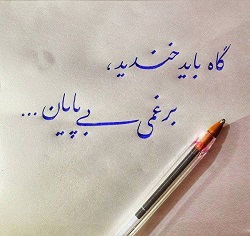 گاه باید خندید،
بر غمی بی پایان ...